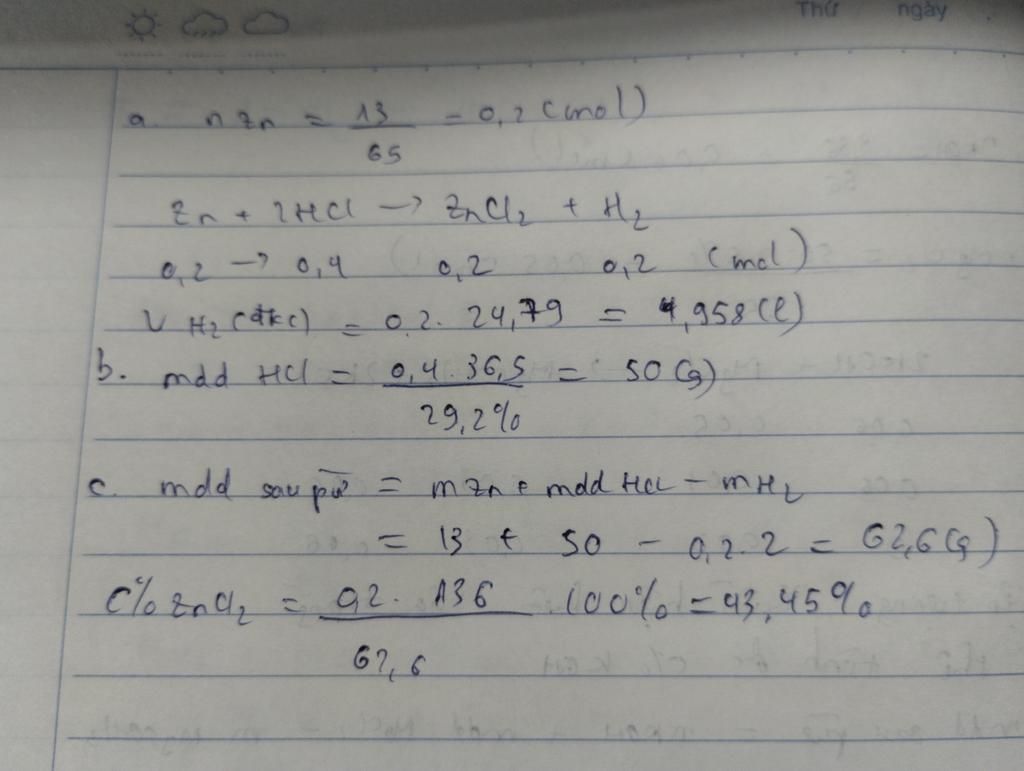 Thứ ngày
a. n Zn = 13/65 = 0,2 (mol)
Zn + 2HCl → ZnCl₂ + H₂
0,2 → 0,4 0,2 0,2 (mol)
V H₂ (đkc) = 0,2. 24,79 = 4,958 (l)
b. mdd HCl = 0,4. 36,5/29,2% = 50 (g)
c. mdd sau pứ = mZn + mdd HCl - mH₂
= 13 + 50 - 0,2. 2 = 62,6 (g)
C% ZnCl₂ = 0,2. 136/62,6 . 100% = 43,45%